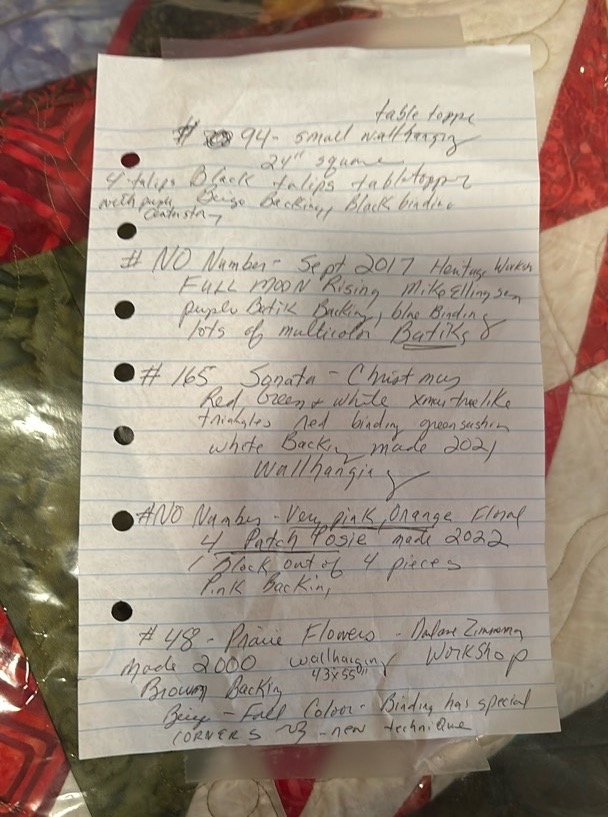 table toppe
# 94 - small wallhanging
24" square
4 tulips Black tulips tabletopper
with purple Beige Backing, Black binding
# NO Number - Sept 2017 Heritage
FULL MOON Rising Mike Ellingsen
purple Batik Backing, blue Binding
lots of multicolor Batiks
# 165 Sonata - Christmas
Red Green + white xmas tree like
triangles red binding green sashing
white Backing made 2021
Wallhanging
# NO Number - Very pink, Orange Floral
4 Patch Posie made 2022
1 Block out of 4 pieces
Pink Backing
# 48 - Prairie Flowers - Zimmerman
made 2000 wallhanging Workshop
43x55"
Brown Backing
Beige - Fall Colour - Binding has special
CORNERS - new technique